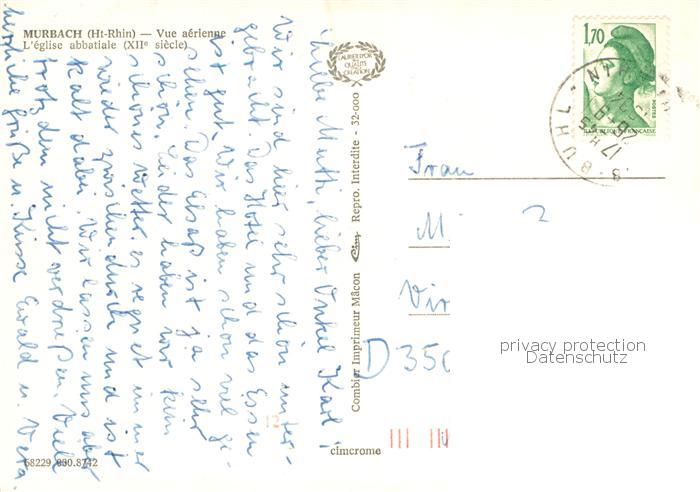 MURBACH (Ht-Rhin) — Vue aérienne
L'église abbatiale (XIIe siècle)
Liebe Mutti, lieber Onkel Karl,
Wir sind hier sehr schön unter-
gebracht. Das Hotel und das Essen
ist gut. Wir haben schon viel ge-
sehen. Das Elsaß ist ja sehr
schön. Leider haben wir kein
schönes Wetter. es regnet immer
wieder zwischendurch und ist
kalt dabei. Wir lassen uns aber
trotzdem nicht verdrießen. Viele
herzliche Grüße u. Küsse Ewald u. Vera
68229 030.8742
LAURIER D'OR
QUALITÉ
CRÉATION
Combier Imprimeur Mâcon Cim Repro. Interdite - 32-000 X
cimcrome
1,70
POSTES
REPUBLIQUE FRANÇAISE
BUHL
17
Frau
M
D 350
privacy protection
Datenschutz